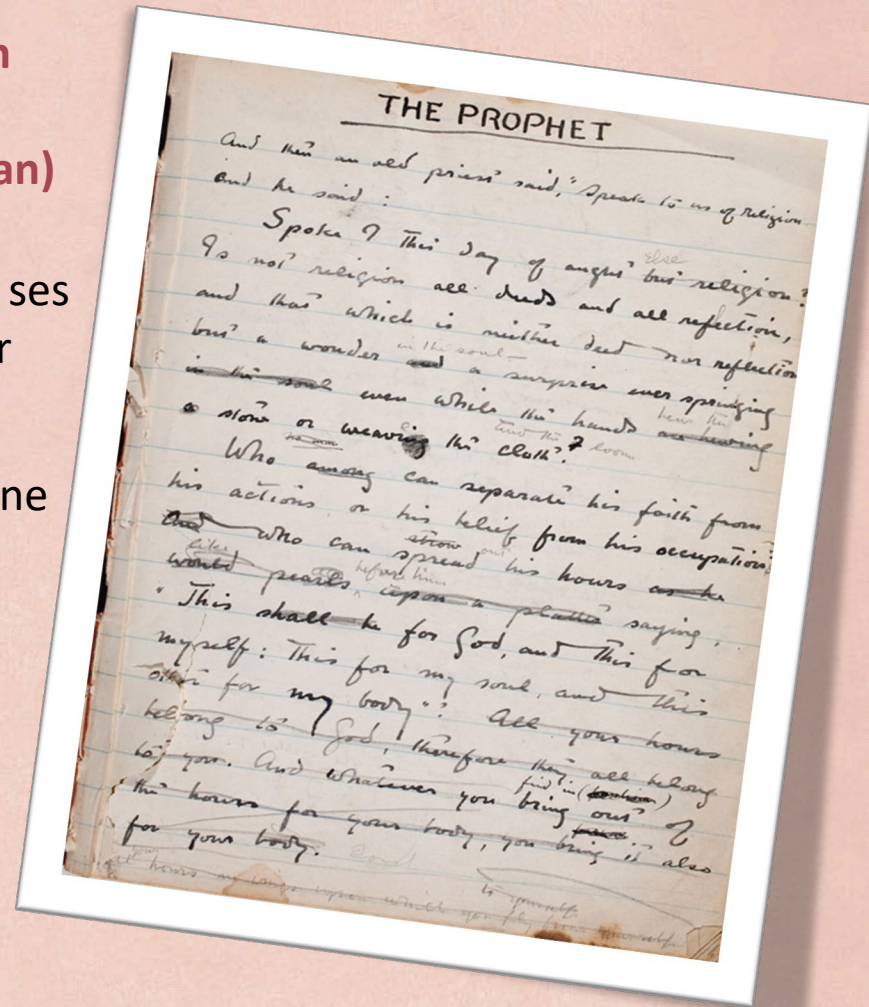 n
an)
ses
r
ne
THE PROPHET
And then an old priest said, "Speak to us of religion
and he said :
Spoke I this day of aught but religion?
else
Is not religion all deeds and all reflection,
and that which is neither deed nor reflection
in the soul
but a wonder and a surprise ever springing
in the soul even while the hands are hewing
hew the
a stone or weaving the cloth?
tend the loom
Who among can separate his faith from
his actions or his belief from his occupation;
And who can strow spread out his hours as he
like
would pearls before him upon a platter saying,
"This shall be for God, and this for
myself: This for my soul, and this
other for my body"? All your hours
belong to God, therefore they all belong
to you. And whatever you bring out of
find in
the hours for your body, you bring it also
for your body.
to yourself
hours wings upon which you fly from yourself